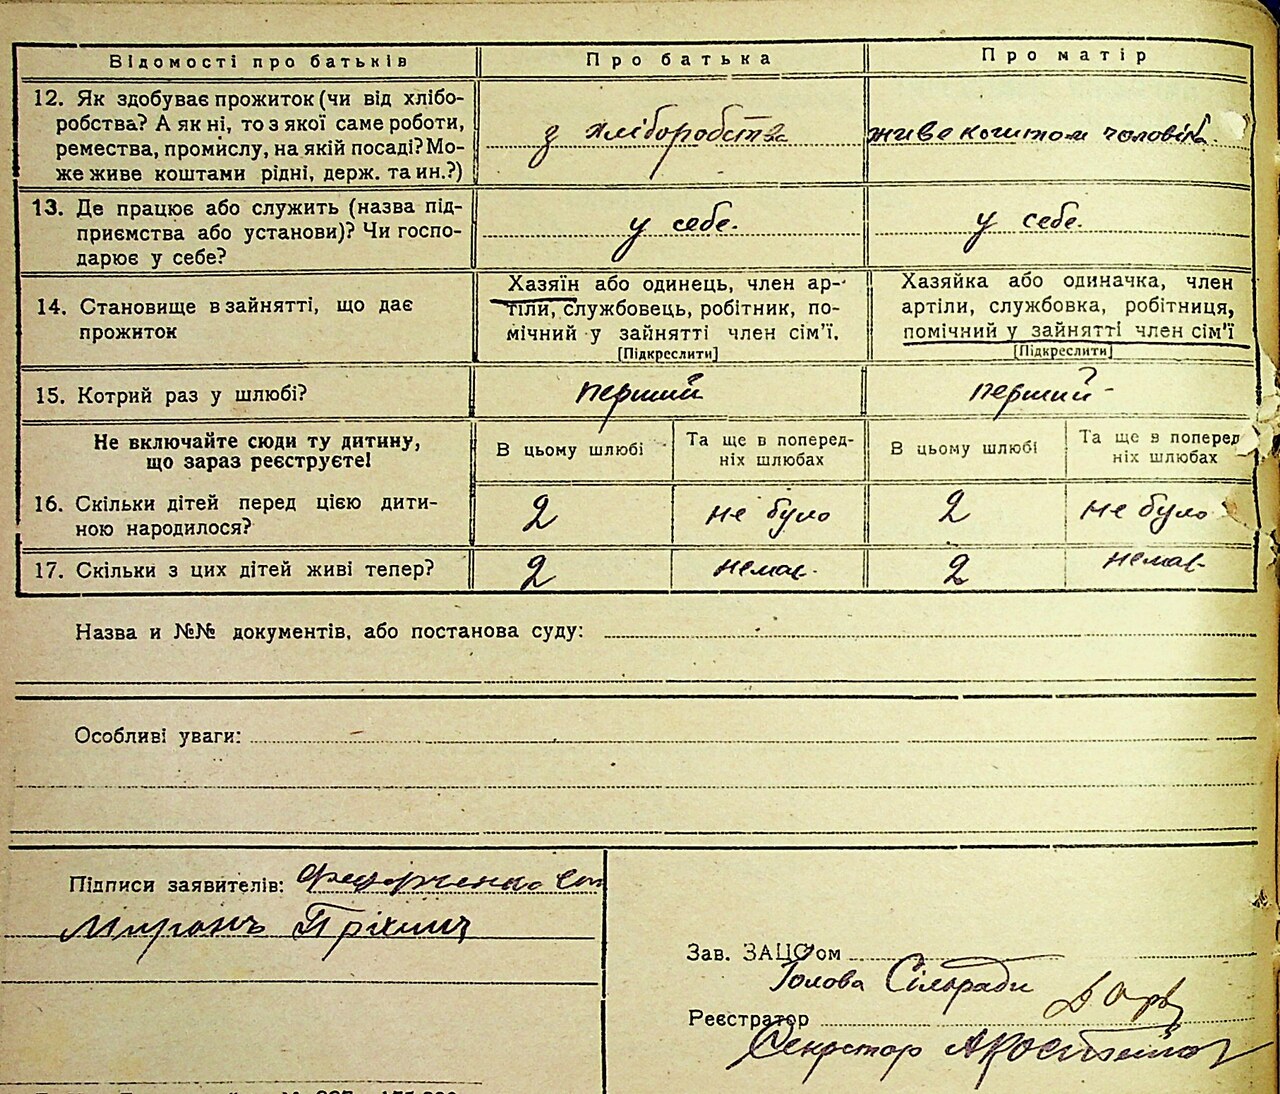 Відомості про батьків
Про батька
Про матір
12. Як здобуває прожиток (чи від хлібо-
робства? А як ні, то з якої саме роботи,
ремества, промислу, на якій посаді? Мо-
же живе коштами рідні, держ. та ин.?)
з хліборобства
живе коштом чоловіка
13. Де працює або служить (назва під-
приємства або установи)? Чи госпо-
дарює у себе?
у себе.
у себе.
14. Становище в зайнятті, що дає
прожиток
Хазяїн або одинець, член ар-
тіли, службовець, робітник, по-
мічний у зайнятті член сім'ї.
[Підкреслити]
Хазяйка або одиначка, член
артіли, службовка, робітниця,
помічний у зайнятті член сім'ї
[Підкреслити]
15. Котрий раз у шлюбі?
перший
перший
Не включайте сюди ту дитину,
що зараз реєструєте!
В цьому шлюбі
Та ще в поперед-
ніх шлюбах
В цьому шлюбі
Та ще в поперед
ніх шлюбах
16. Скільки дітей перед цією дити-
ною народилося?
2
не було
2
не було
17. Скільки з цих дітей живі тепер?
2
немає
2
немає
Назва и №№ документів, або постанова суду:
Особливі уваги:
Підписи заявителів: Федорченко
Миронъ
Зав. ЗАЦС'ом
Голова Сільради
Реєстратор
Секретар